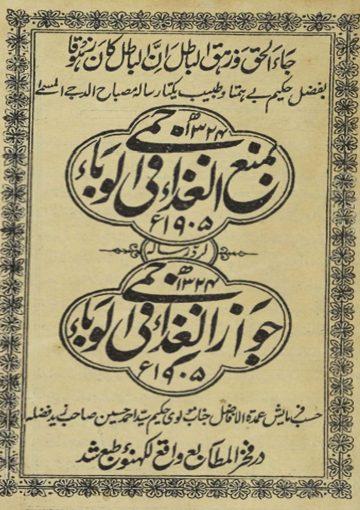 جاء الحق وزهق الباطل ان الباطل كان زهوقا
بفضل حکیم بے ہمتا و طبیب یکتا رسالہ مصباح الدجے المسمے
۱۳۲۴ھ
بمنع الغذاء فی حمی الوباء
۱۹۰۵ء
در رسالہ
۱۳۲۴ھ
جواز الغذاء فی حمی الوباء
۱۹۰۵ء
حسب فرمایش عمدۃ الافاضل جناب مولوی حکیم سید احمد حسین صاحب زید فضلہ
در فخر المطابع واقع لکھنؤ طبع شد